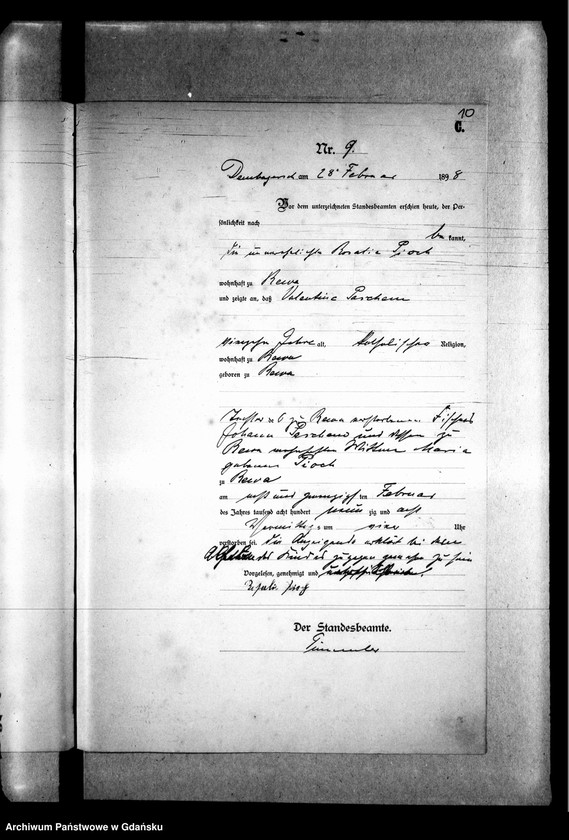 10
C.
Nr. 9.
am 28 Februar 1898
Vor dem unterzeichneten Standesbeamten erschien heute, der Per-
sönlichkeit nach
be kannt,
die unverehelichte Rosalia Pioch
wohnhaft zu Rewa
und zeigte an, daß Valentina
vierzehn Jahre alt, katholischer Religion,
wohnhaft zu Rewa
geboren zu Rewa
Tochter des zu Rewa verstorbenen Fischers
Johann und dessen zu
Rewa Wittwe Maria
geborene Pioch
zu Rewa
am acht und zwanzigsten Februar
des Jahres tausend acht hundert neun zig und acht
Vormittags um vier Uhr
verstorben sei. Die Anzeigende erklärt bei dem
des Kindes zugegen gewesen zu sein
Vorgelesen, genehmigt und unterschrieben.
Pioch
Der Standesbeamte.
Archiwum Państwowe w Gdańsku